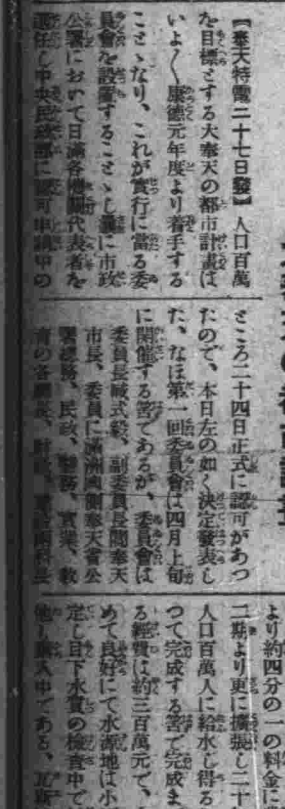 【奉天特電二十七日發】人口百萬
を目標とする大奉天の都市計畫は
いよ〱康德元年度より着手する
ことゝなり、これが實行に當る委
員會を設置することゝし曩に市政
公署において日滿各機關代表者を
選任し中央民政部に認可申請中の
ところ二十四日正式に認可があつ
たので、本日左の如く決定發表し
た、なほ第一回委員會は四月上旬
に開催する筈であるが、委員會は
委員長臧式毅、副委員長閻奉天
市長、委員に滿洲國側奉天省公
署總務、民政、警務、實業、敎
育の各廳長、
より約四分の一の料金に
二期より更に擴張し二十
人口百萬人に給水し得る
つて完成する筈で完成ま
る經費は約三百萬元で、
めて良好にて水源地は小
定し目下水質の檢査中で
中である、